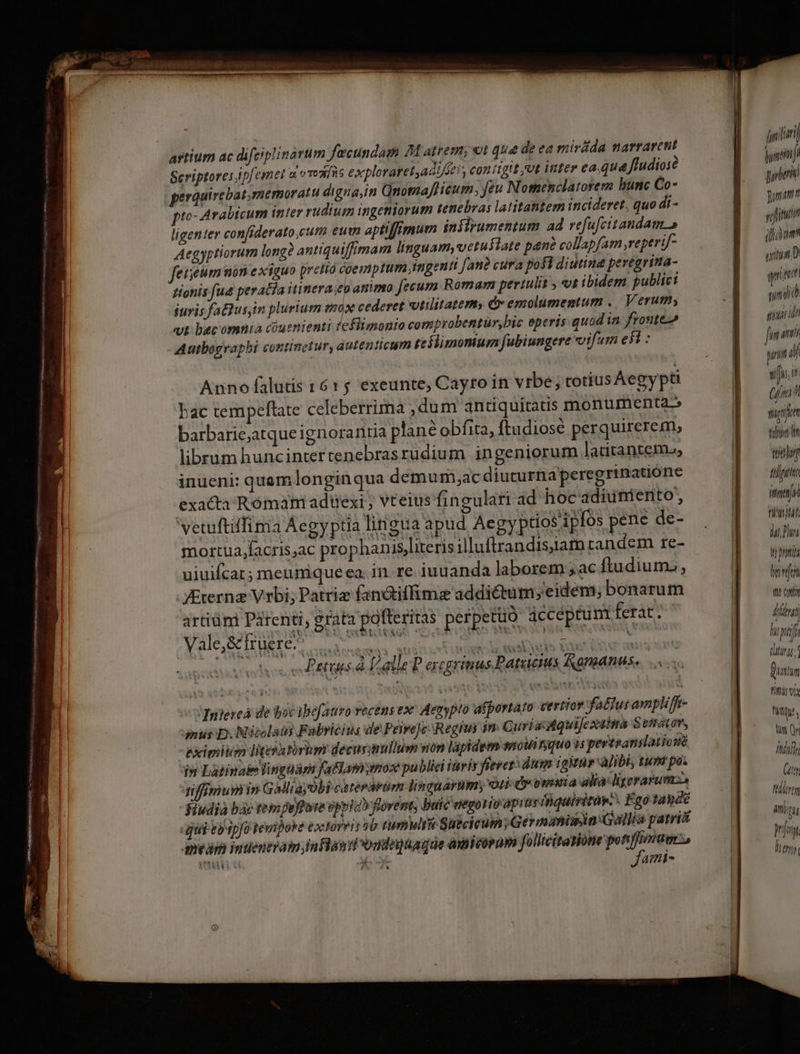 artium ac disciplinarum fæcundam Matrem, vt quæ de ea miráda narrarent
Scriptores, ipsemet αὐτοψίας exploraret, adisset, contigit, vt inter ea, quæ studiosè
perquirebat, memoratu digna, in Onomasticum, seu Nomenclatorem hunc Co-
pto-Arabicum inter rudium ingeniorum tenebras latitantem incideret, quo di-
ligenter considerato, cum eum aptissimum instrumentum ad resuscitandam
Aegyptiorum longè antiquissimam linguam, vetustate penè collapsam, reperis-
set, eum non exiguo pretio coemptum, ingenti sanè cura post diutina peregrina-
tionis suæ peracta itinera, eo animo secum Romam pertulit, vt ibidem publici
iuris factus, in plurium mox cederet vtilitatem, & emolumentum. Verum,
vt hæc omnia cõuenienti testimonio comprobentur, hic operis quod in fronte
Authographi continetur, autenticum testimonium subiungere visum est:
Anno salutis 1615 exeunte, Cayro in vrbe, totius Aegypti
hac tempestate celeberrima, dum antiquitatis monumenta
barbarie, atque ignorantia planè obsita, studiosè perquirerem,
librum hunc inter tenebras rudium ingeniorum latitantem,
inueni: quem longinqua demum, ac diuturna peregrinatione
exacta Romam aduexi, vt eius singulari ad hoc adiumento,
vetustissima Aegyptia lingua apud Aegyptios ipsos penè de-
mortua, sacris, ac prophanis, literis illustrandis, iam tandem re-
uiuiscat; meumque ea in re iuuanda laborem, ac studium,
Æternæ Vrbi, Patriæ sanctissimæ addictum, eidem, bonarum
artium Parenti, grata posteritas perpetuò acceptum ferat.
Vale, & fruere.
Petrus à Valle Peregrinus Patricius Romanus.
Intereà de hoc thesauro recens ex Aegypto asportato certior factus amplissi-
mus D. Nicolaus Fabricius de Peiresc Regius in Curia Aquisextina Senator,
eximium literatorum decus, nullum non lapidem mouit, quo is pertranslatione
in Latinam linguam factam, mox publici iuris fieret: dum igitur alibi, tum po-
tissimum in Gallia, vbi cæterarum linguarum, vti & omnia alia literarum
studia hac tempestate oppidò florent, huic negotio aptus inquiritur. Ego tandẽ
qui eo ipso tempore extorris ob tumultus Suecicum, Germania, in Gallia patriã
meam inueneram, instanti vndequaque amicorum sollicitatione potissimum
fami-